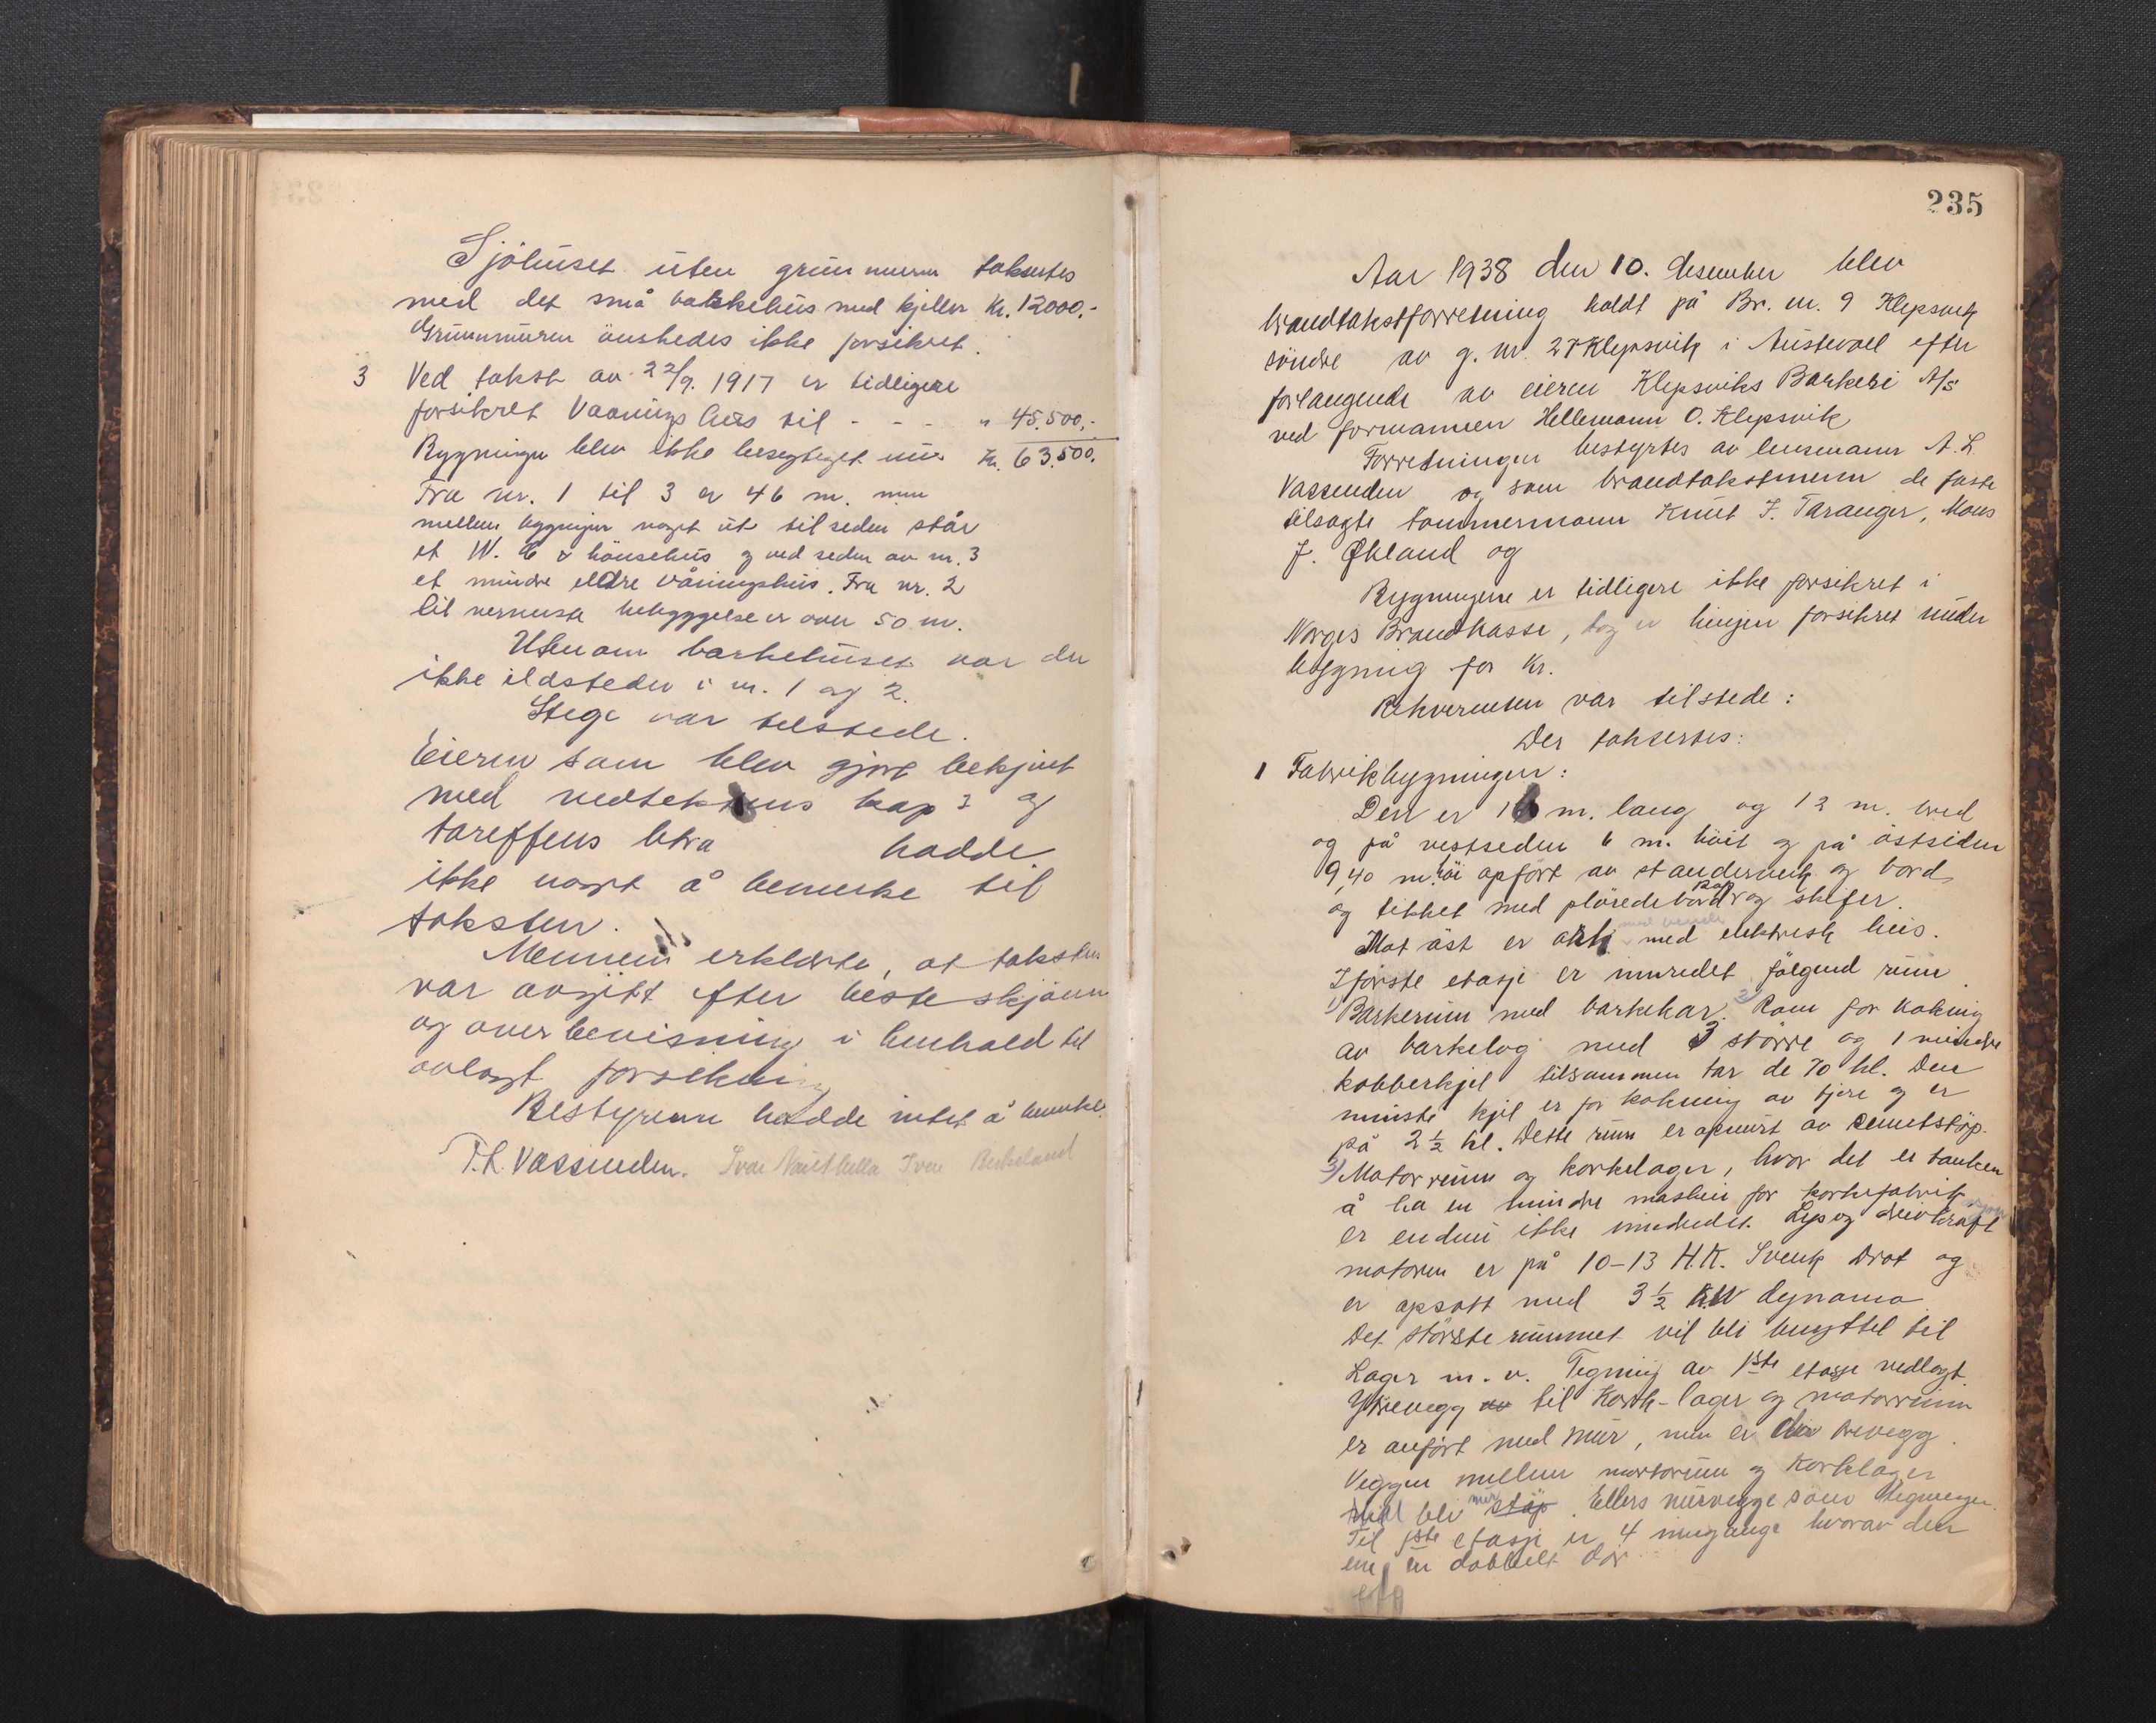 Sjöhuset uten grunnmurm taksertes
med det små barkehus med kjeller Kr. 12000.-
Grunnmuren önskedes ikke forsikret.
3 Ved takst av 22/9. 1917 er tidligere
forsikret Vaanings hus til - - - " 45.500,-
Bygningen blev ikke besegtiget nu. Kr. 63.500.
Fra nr. 1 til 3 er 46 m. men
mellem bygninger noget ut til siden står
et W. C & hönsehus og ved siden av nr. 3
et mindre eldre våningshus. Fra nr. 2
til nermeste bebyggelse er over 50 m.
Utenom barkehuset var der
ikke ildsteder i nr. 1 og 2.
Stege var tilstede.
Eieren som blev gjort bekjent
med vedtektens kap 3 og
tareffens litra hadde
ikke noget å bemerke til
taksten.
Mennene erklærte, at taksten
var avgitt efter beste skjönn
og overbevisning i henhold til
avlagt forsikring
Bestyreren hadde intet å bemerke.
T. L. Vassenden. Ivar Iver Birkeland
235
Aar 1938 den 10. desember blev
brandtakstforretning holdt på Br. nr. 9 Klepsvik
söndre av g. nr. 27 Klepsvik i Austevoll efter
forlangende av eieren Klepsviks Barkeri A/S
ved formannen Hellemann O. Klepsvik
Forretningen bestyrtes av lensmann A. L.
Vassenden og som brandtakstmenn de faste
tilsagte tömmermann Knut J. Taranger, Mons
J. Økland og
Bygningene er tidligere ikke forsikret i
Norges Brandkasse, dog er forsikret under
bygning for Kr.
Rekvirenten var tilstede:
Der taksertes:
1 Fabrikbygningen:
Den er 16 m. lang og 12 m. bred
og på vestsiden 6 m. höit og på östsiden
9,40 m. höi opfört av standerverk og bord
og tekket med plöiede bord og skifer.
Mot öst er ark med elektrisk heis.
I förste etasje er innredet fölgend rum
1) Barkerum med barkekar. 2) Rom for koking
av barkelog med 3 större og 1 mindre
kobberkjel tilsammen tar de 70 hl. Den
minste kjel er for kokning av tjere og er
på 2 1/2 hl. Dette rum er opmurt av sementstöp.
3) Motorrum og korkelager, hvor det er tanken
å ha en mindre maskin for korkefabrik
er endnu ikke innredet. Lys og drivkraft
motoren er på 10-13 H.K. Svensk Drot og
er opsatt med 3 1/2 KW dynamo
Det störste rummet vil bli benyttet til
Lager m. v. Tegning av 1ste etasje vedlagt.
Yttrevegg av til Kork-lager og motorrum
er anfört med mur, men er trevegg.
Veggen mellem motorrum og Korklager
skal bli mur stöp. Ellers murvegge som tegningen.
Til 1ste etasje er 4 innganger hvorav den
ene en dobbelt dör